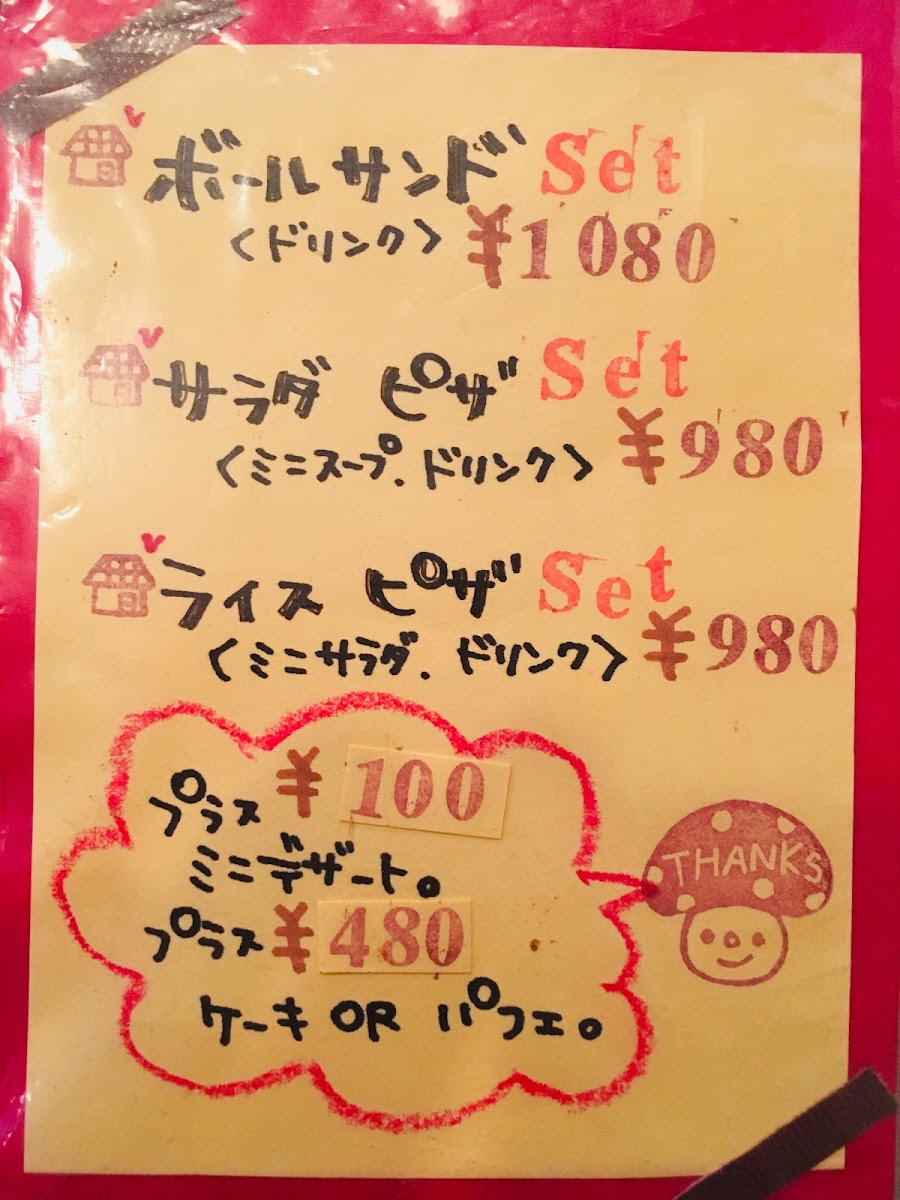 ボールサンド Set
〈ドリンク〉 ¥1080
サラダ ピザ Set
〈ミニスープ. ドリンク〉 ¥980
ライス ピザ Set
〈ミニサラダ. ドリンク〉 ¥980
プラス ¥100
ミニデザート。
プラス ¥480
ケーキ OR パフェ。
THANKS